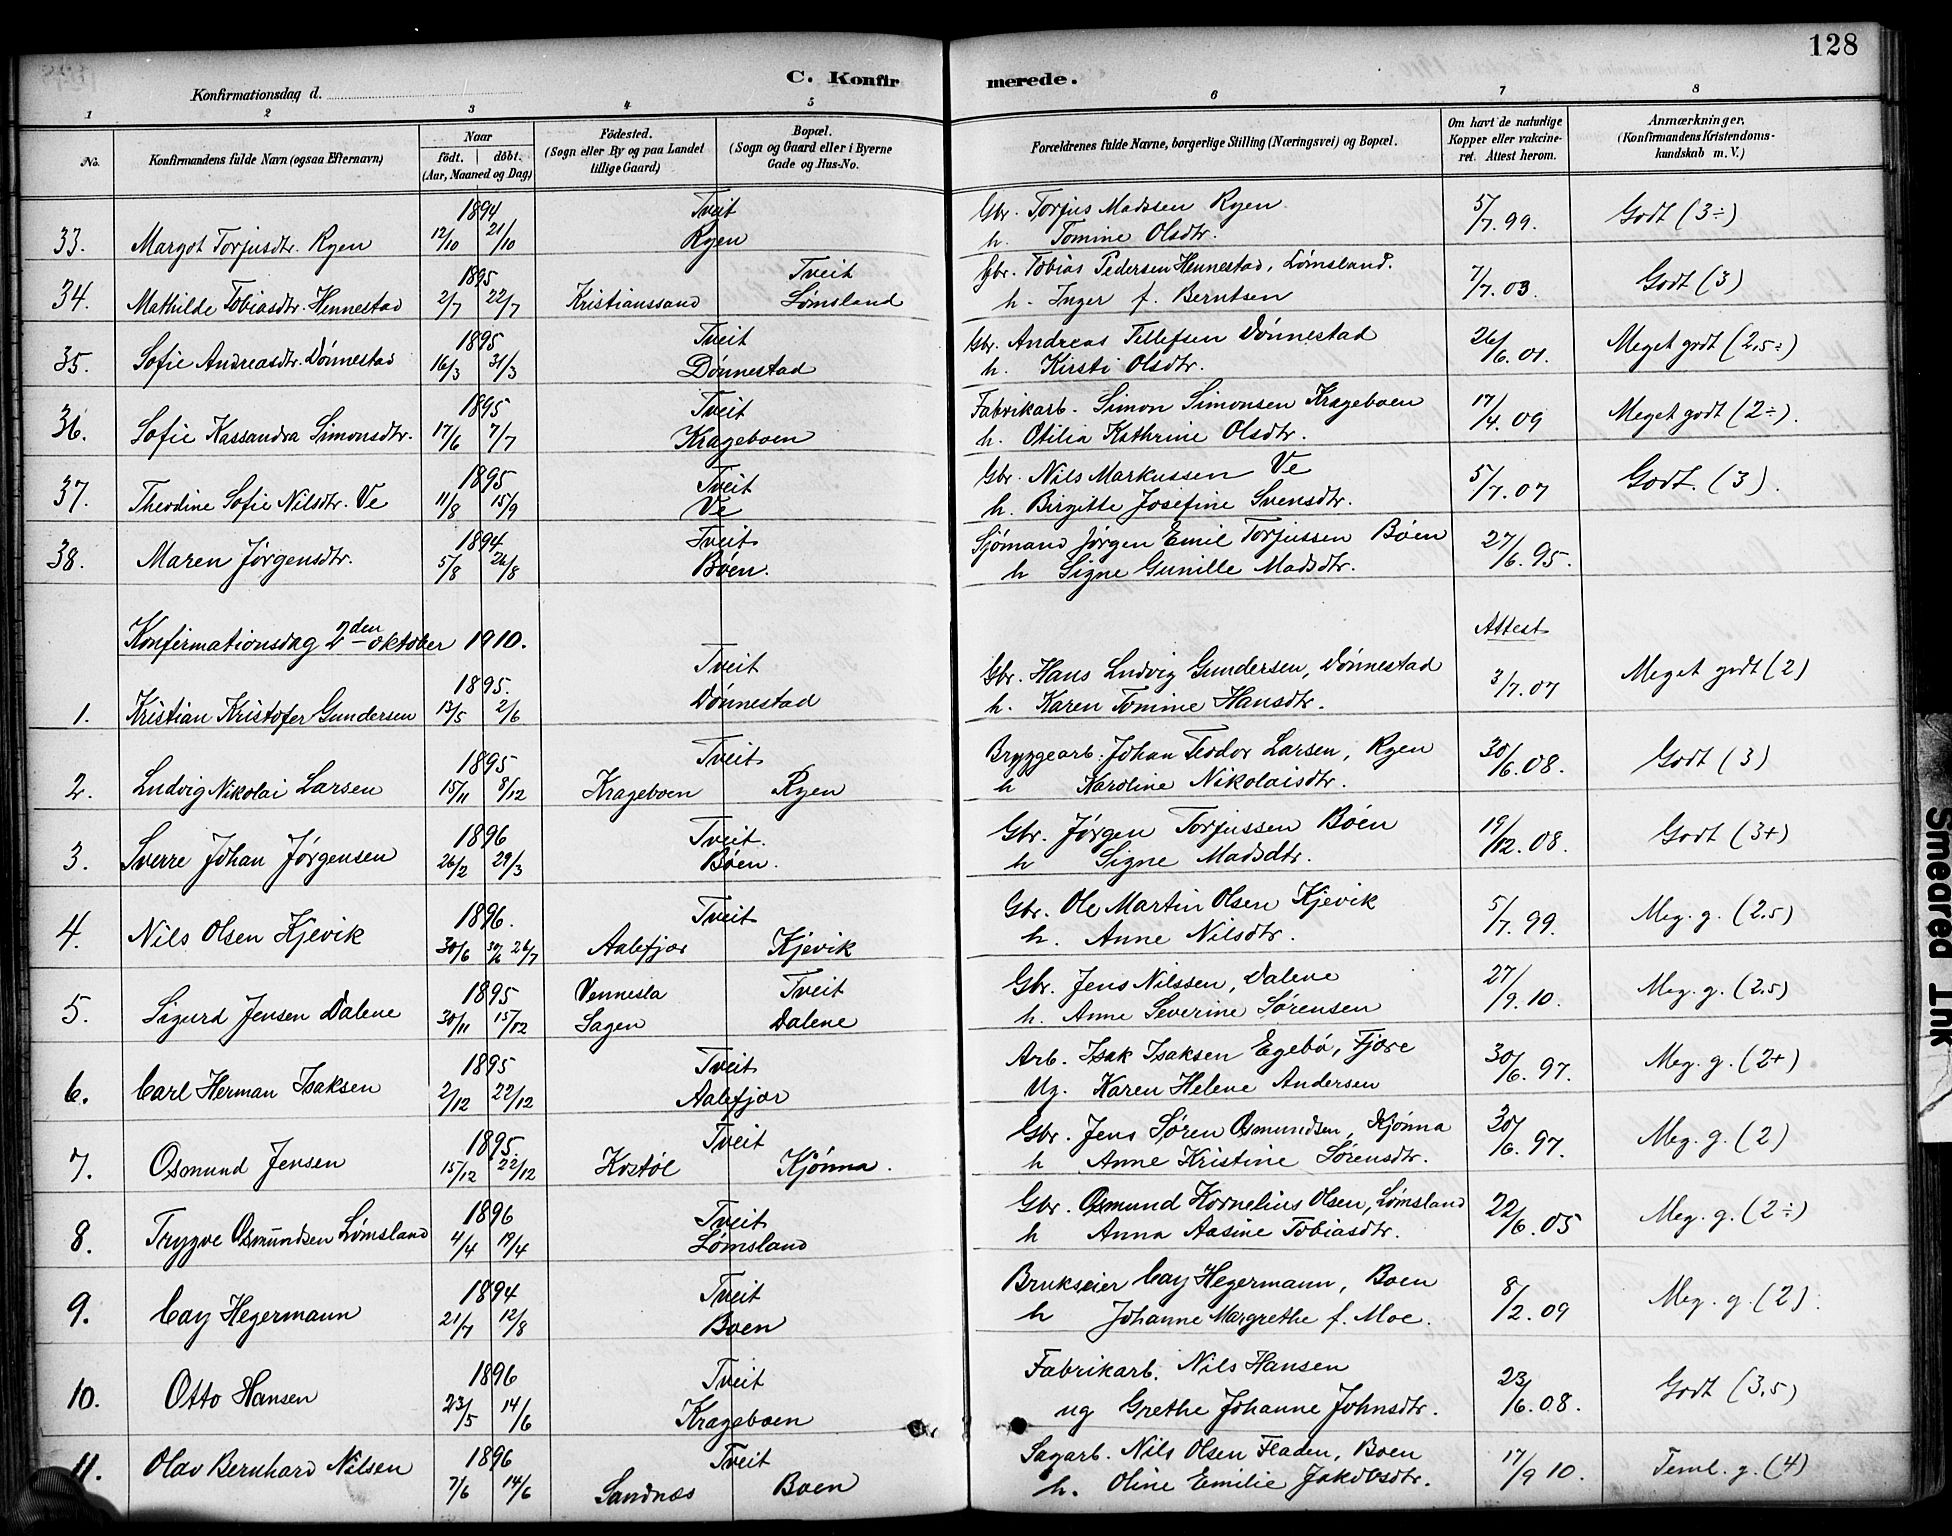 128
C. Konfirmerede.
Konfirmationsdag d.
1 2 3 4 5 6 7 8
No. Konfirmandens fulde Navn (ogsaa Efternavn) Naar født. døbt. (Aar, Maaned og Dag) Fødested. (Sogn eller By og paa Landet tillige Gaard) Bopæl. (Sogn og Gaard eller i Byerne Gade og Hus-No. Forældrenes fulde Navne, borgerlige Stilling (Næringsvei) og Bopæl. Om havt de naturlige Kopper eller vakcineret. Attest herom. Anmærkninger. (Konfirmandens Kristendomskundskab m. V.)
1894 Tveit Gbr. Torjus Madssen Ryen
33. Margot Torjusdtr. Ryen 12/10 21/10 Ryen h. Tomine Olsdtr. 5/7. 99. Godt (3÷)
1895 Tveit Gbr. Tobias Pedersen Hennestad, Lømsland.
34. Mathilde Tobiasdtr. Hennestad 2/7 22/7 Kristianssand Lømsland h. Inger f. Berntsen 7/7. 03. Godt (3)
1895 Tveit Gbr. Andreas Tellefsen Dønnestad
35. Sofie Andreasdtr. Dønnestad 16/3 31/3 Dønnestad h. Kirsti Olsdtr. 26/6. 01. Meget godt (2,5÷)
1895 Tveit Fabrikarb. Simon Simonsen Krageboen
36. Sofie Kassandra Simonsdtr. 17/6 7/7 Krageboen h. Otilia Kathrine Olsdtr. 17/4. 09 Meget godt (2÷).
1895 Tveit Gbr. Nils Markussen Ve
37. Theodine Sofie Nilsdtr. Ve 11/8 15/9 Ve h. Birgitte Josefine Svensdtr. 5/7. 07 Godt. (3).
1894 Tveit Sjømand Jørgen Emil Torjussen Bøen
38. Maren Jørgensdtr. 5/8 26/8 Bøen. h Signe Gunille Madsdtr. 27/6. 95.
Konfirmationsdag 2den oktober 1910. Attest
1895. Tveit Gbr. Hans Ludvig Gundersen, Dønnestad
1. Kristian Kristofer Gundersen 13/5 2/6 Dønnestad h. Karen Tomine Hansdtr. 3/7. 07 Meget godt (2)
1895 Tveit Bryggearb. Johan Teodor Larsen, Ryen
2. Ludvig Nikolai Larsen 15/11 8/12 Krageboen Ryen h Karoline Nikolaisdtr. 30/6. 08. Godt (3)
1896 Tveit. Gbr. Jørgen Torjussen Bøen
3. Sverre Johan Jørgensen 26/2 29/3 Bøen. h Signe Madsdtr. 19/12. 08. Godt (3+)
1896. Tveit Gbr. Ole Martin Olsen Kjevik
4. Nils Olsen Kjevik 30/6 30/6 26/7 Aalefjær Kjevik h. Anne Nilsdtr. 5/7. 99. Meg. g. (2,5)
1895 Vennesla Tveit Gbr. Jens Nilssen, Dalene
5. Sigurd Jensen Dalene 30/11 15/12 Sagen Dalene h. Anne Severine Sørensen 27/9. 10. Meg. g. (2,5)
1895 Tveit Arb. Isak Isaksen Egebø, Fjære
6. Carl Herman Isaksen 2/12 22/12 Aalefjær Ug. Karen Helene Andersen 30/6. 97. Meg. g. (2+)
1895. Tveit Gbr. Jens Søren Osmundsen, Kjønna
7. Osmund Jensen 15/12 22/12 Kostøl Kjønna. h Anne Kristine Sørensdtr. 30/6. 97. Meg. g. (2)
1896 Tveit Gbr. Osmund Kornelius Olsen, Lømsland
8. Trygve Osmundsen Lømsland 4/4 19/4 Lømsland h Anna Aasine Tobiasdtr. 22/6. 05 Meg. g. (2÷)
1894 Tveit Brukseier Cay Hegermann, Boen
9. Cay Hegermann 21/7 12/8 Boen h Johanne Margrethe f. Moe. 8/2. 09 Meg. g. (2).
1896 Tveit Fabrikarb. Nils Hansen
10. Otto Hansen 23/5 14/6 Krageboen ug Grethe Johanne Johnsdtr. 23/6. 08. Godt (3,5)
1896 Tveit Sagarb. Nils Olsen Fladen, Boen
11. Olav Bernhard Nilsen 7/6 14/6 Sandnæs Boen h. Oline Emilie Jakobsdtr. 17/9 10. Teml. g. (4)
Smeared Ink